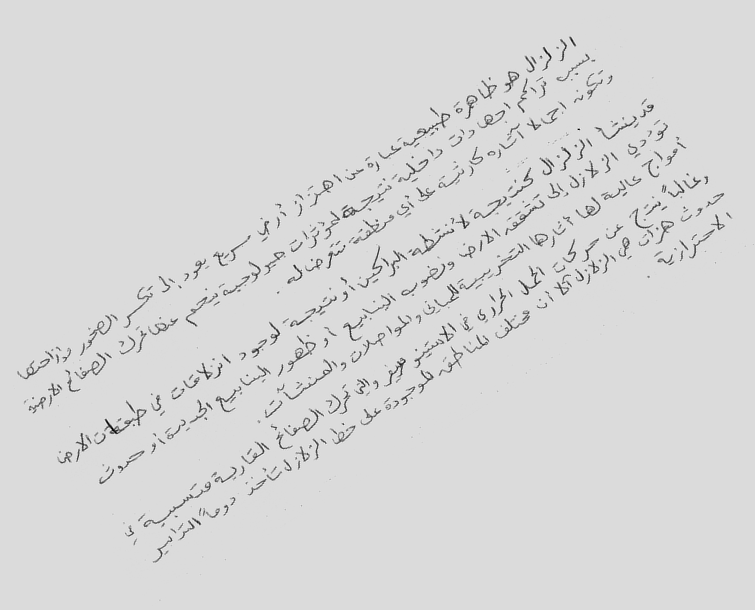 الزلزال هو ظاهرة طبيعية عبارة عن اهتزاز أرضي سريع يعود إلى تكسر الصخور وإزاحتها
بسبب تراكم اجهادات داخلية نتيجة لمؤثرات جيولوجية ينجم عنها تحرك الصفائح الارضية
وتكون اجمالا آثاره كارثية على أي منطقة تتعرض له.
قد ينشأ الزلزال كنتيجة لأنشطة البراكين أو نتيجة لوجود انزلاقات في طبقات الارض
تؤدي الزلازل إلى تشقق الارض ونضوب الينابيع أو ظهور الينابيع الجديدة أو حدوث
أمواج عالية لها آثارها التخريبية للمباني والمواصلات والمنشآت.
وغالباً ينتج عن حركات الحمل الحراري في الاستينوسفير والتي تحرك الصفائح القارية متسببة في
حدوث هزات هي الزلازل ألا أن مختلف المناطق الموجودة على خط الزلازل تأخذ دوماً التدابير
الاحترازية.